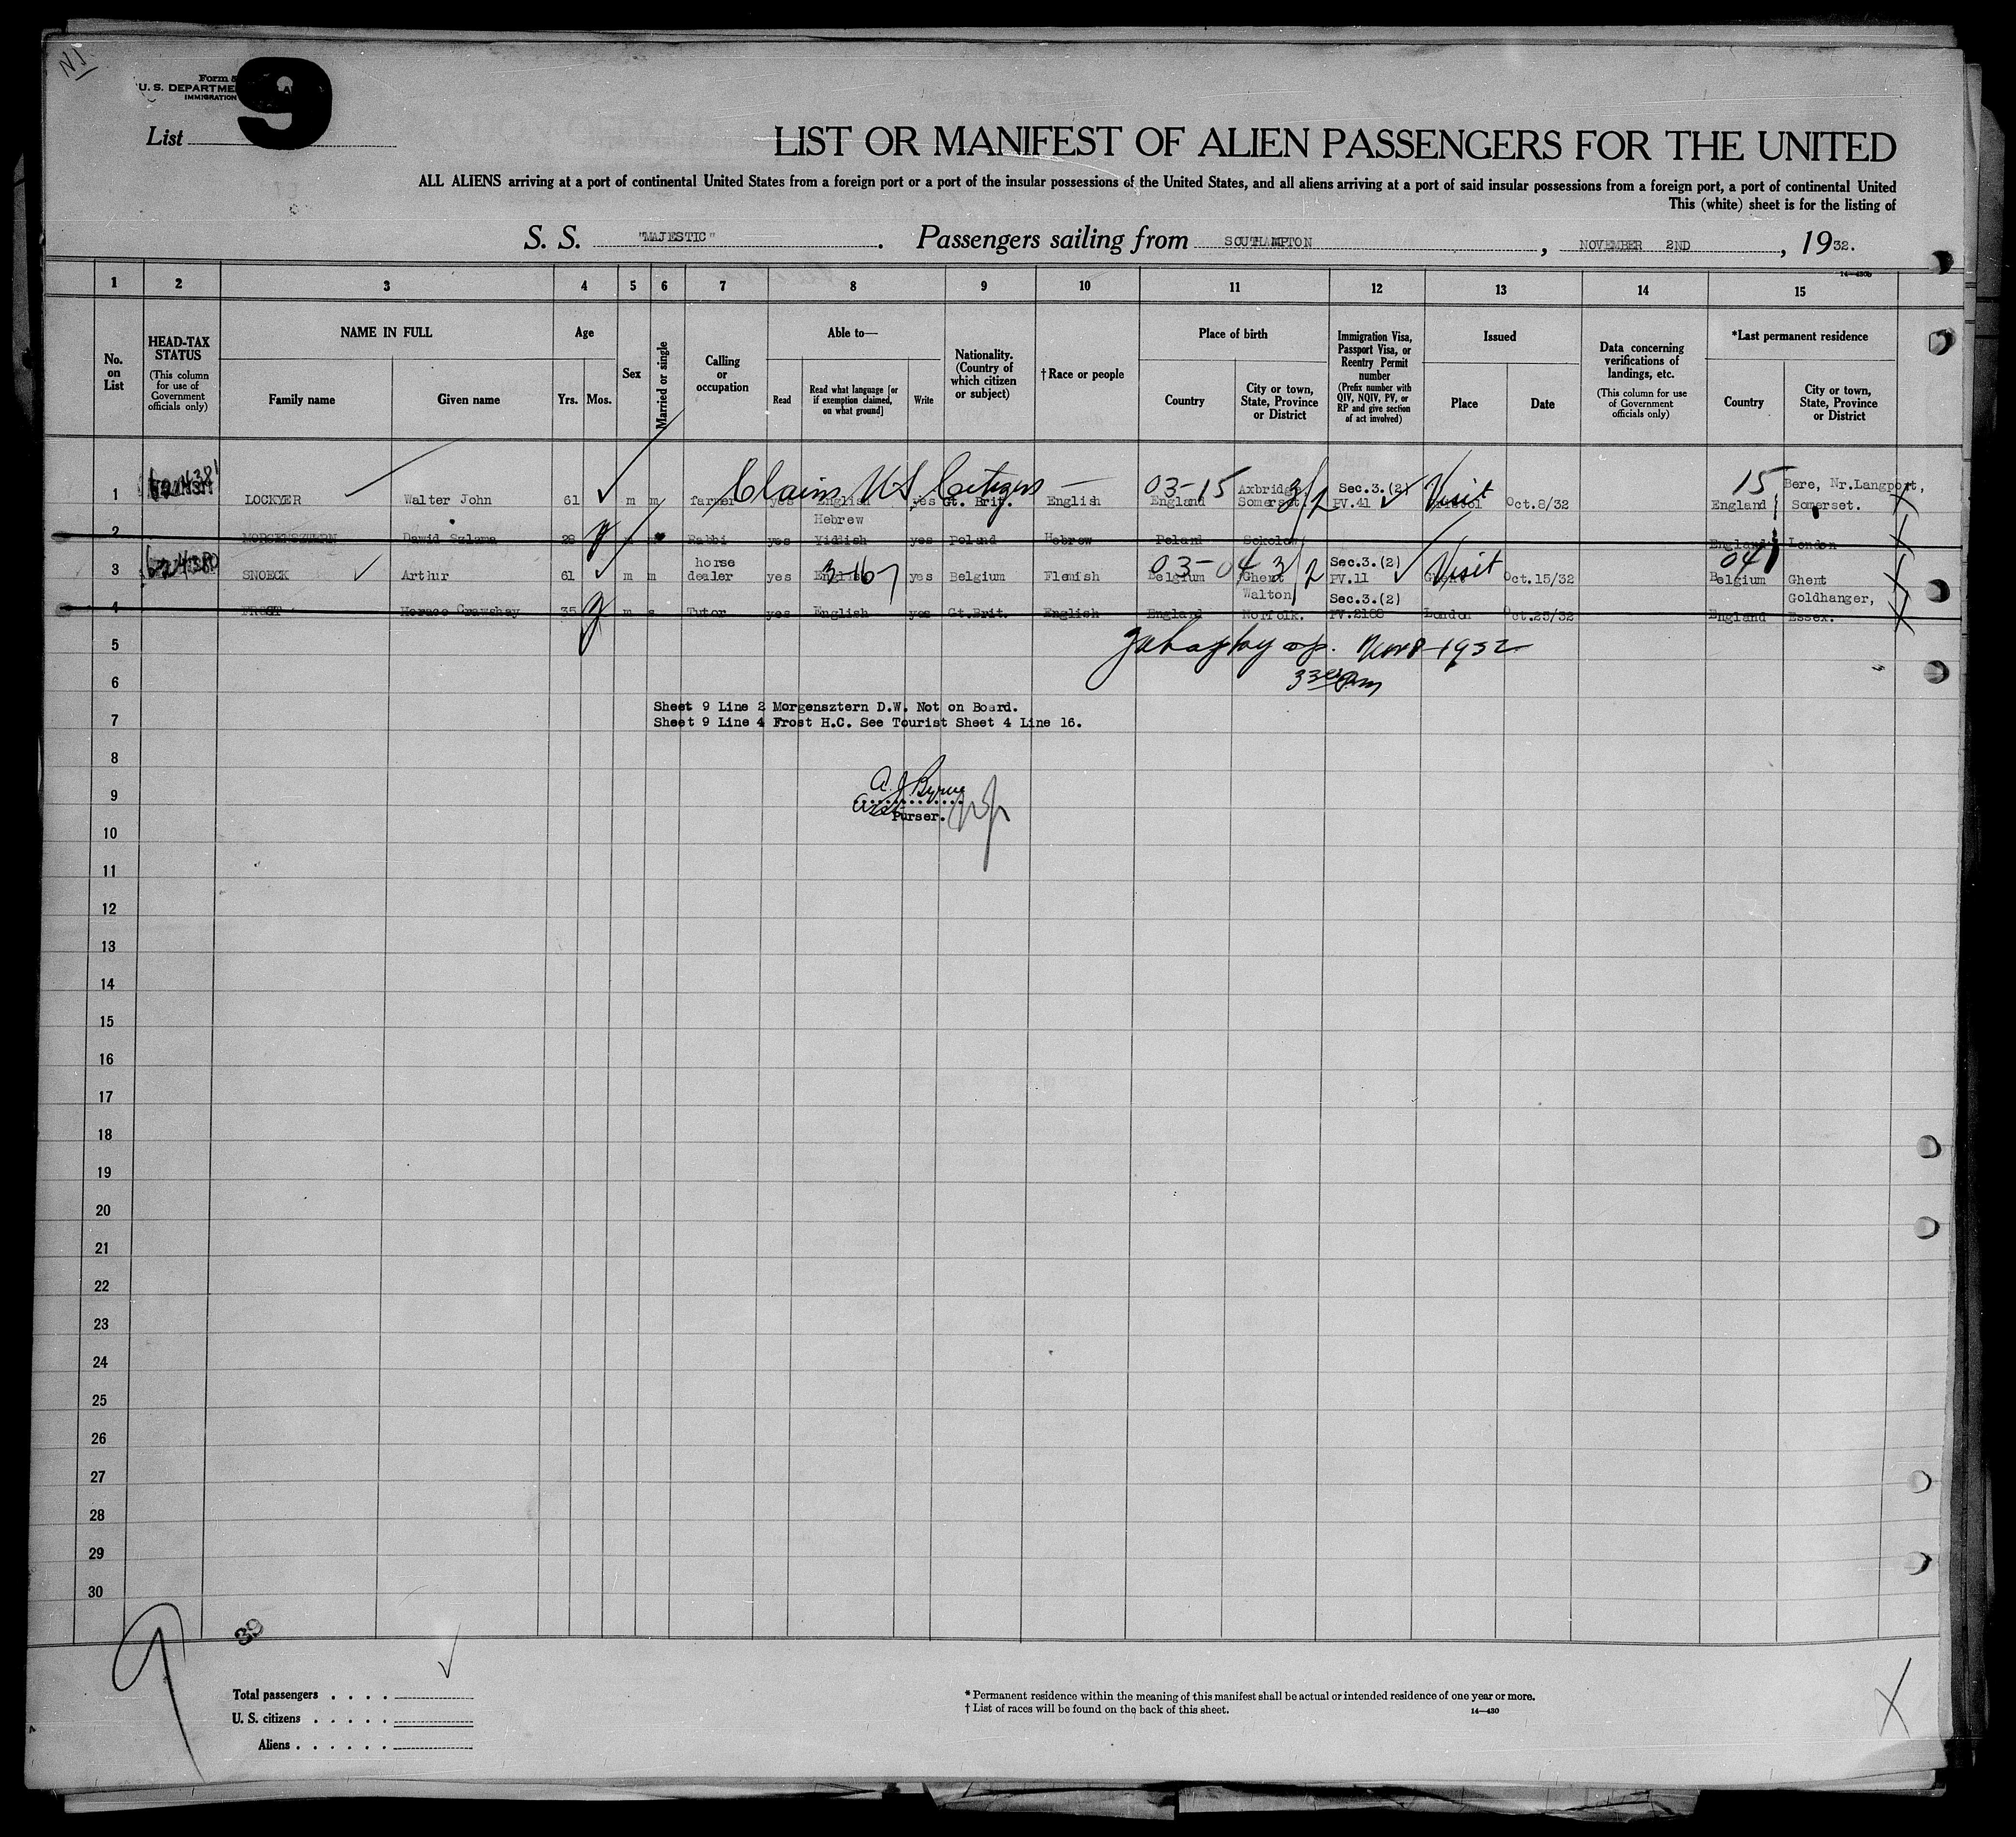 NJ
Form 5
U. S. DEPARTME
IMMIGRATION
List 9
LIST OR MANIFEST OF ALIEN PASSENGERS FOR THE UNITED
ALL ALIENS arriving at a port of continental United States from a foreign port or a port of the insular possessions of the United States, and all aliens arriving at a port of said insular possessions from a foreign port, a port of continental United
This (white) sheet is for the listing of
S. S. "MAJESTIC". Passengers sailing from SOUTHAMPTON, NOVEMBER 2ND, 1932.
14—430b
1 2 3 4 5 6 7 8 9 10 11 12 13 14 15
No. on List
HEAD-TAX STATUS (This column for use of Government officials only)
NAME IN FULL
Family name Given name
Age
Yrs. Mos.
Sex
Married or single
Calling or occupation
Able to—
Read Read what language [or if exemption claimed, on what ground] Write
Nationality. (Country of which citizen or subject)
† Race or people
Place of birth
Country City or town, State, Province or District
Immigration Visa, Passport Visa, or Reentry Permit number (Prefix number with QIV, NQIV, PV, or RP and give section of act involved)
Issued
Place Date
Data concerning verifications of landings, etc. (This column for use of Government officials only)
*Last permanent residence
Country City or town, State, Province or District
Claims US Citizens — 03-15 3/2 Visit 15
1 LOCKYER Walter John 61 m m farmer yes English yes Gt. Brit. English England Axbridge Somerset. Sec.3.(2) PV.41 Bristol Oct.8/32 England Bere, Nr.Langport, Somerset.
2 MORGENSZTERN Dawid Szlama 28 m Rabbi yes Hebrew Yiddish yes Poland Hebrew Poland Sokolow England London
3-16 03-04 3/2 Visit 04
3 SNOECK Arthur 61 m m horse dealer yes English yes Belgium Flemish Belgium Ghent Sec.3.(2) PV.11 Ghent Oct.15/32 Belgium Ghent
4 FROST Horace Crawshay 35 m s Tutor yes English yes Gt.Brit. English England Walton Norfolk. Sec.3.(2) PV.2188 London Oct.25/32 England Goldhanger, Essex.
5
Nov 8-1932
6
330 pm
Sheet 9 Line 2 Morgensztern D.W. Not on Board.
7
Sheet 9 Line 4 Frost H.C. See Tourist Sheet 4 Line 16.
8
A. J. Byrne
9
Asst
Purser.
10
11
12
13
14
15
16
17
18
19
20
21
22
23
24
25
26
27
28
29
30
9
39
Total passengers . . . .
U. S. citizens . . . . .
Aliens . . . . . .
* Permanent residence within the meaning of this manifest shall be actual or intended residence of one year or more.
† List of races will be found on the back of this sheet.
14—430
X